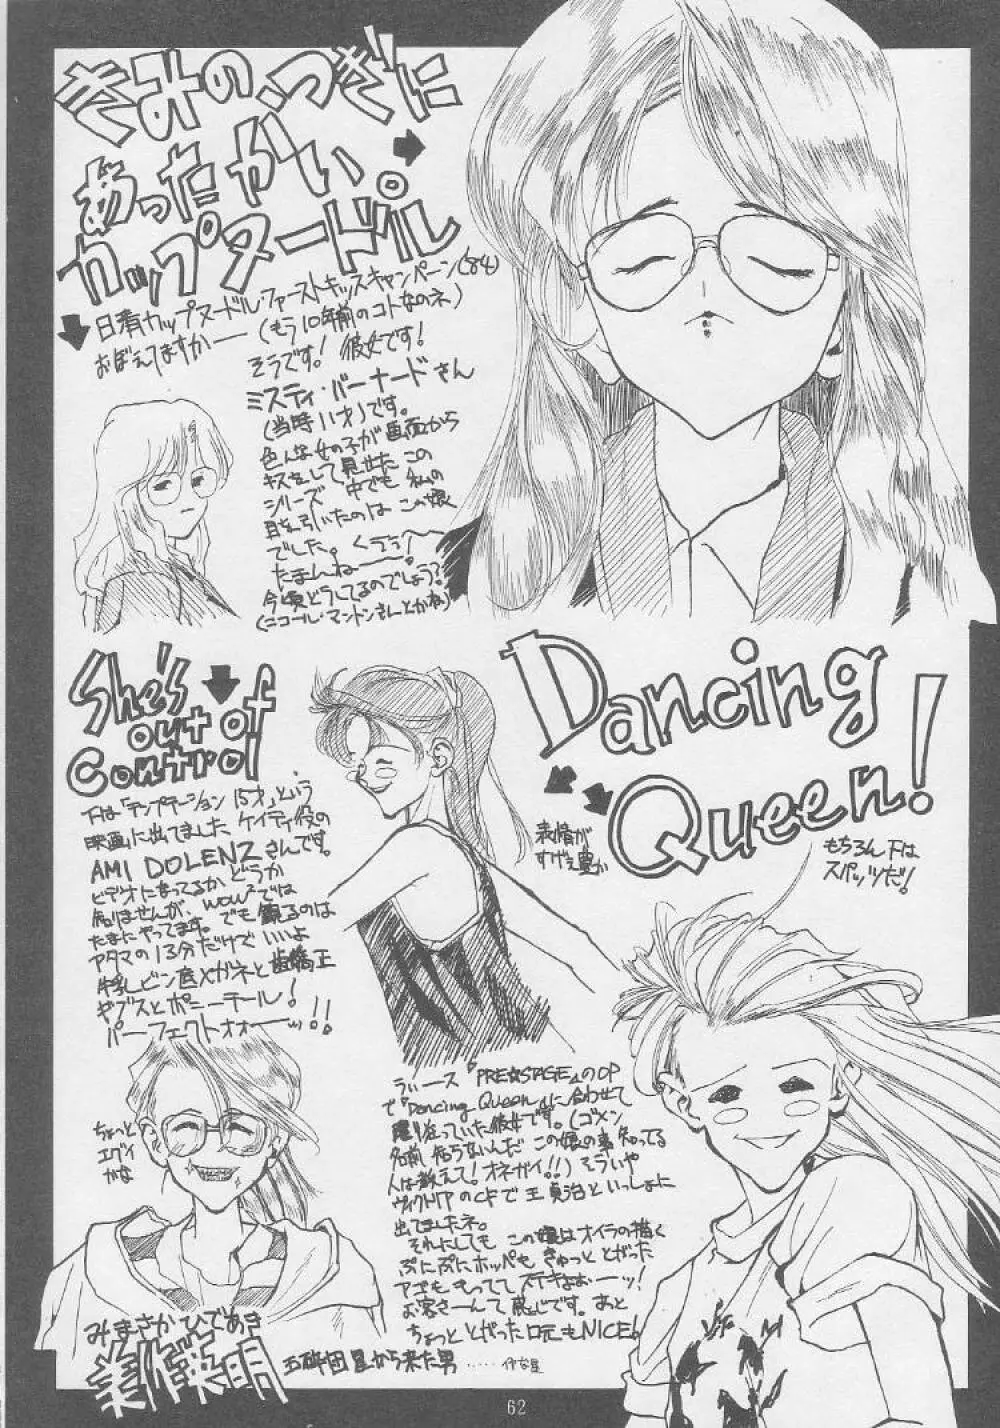 きみの、つぎに
あったかい。
カップヌードル
日清カップヌードル・ファーストキッスキャンペーン('84)
おぼえてますかー(もう10年前のコトなのネ)
そうです! 彼女です!
ミスティ・バーナードさん
(当時11才)です。
色んな女の子が画面から
キスをして見せた この
シリーズ 中でも 私の
目を引いたのは この娘
でした。くううーー
たまんねーー!
今頃どうしてるのでしょう?
(ニコール・マントンさんとかね)
She's
out of
Control
下は「テンプテーション15才」という
映画に出てました ケイティ役の
AMI DOLENZさんです。
ビデオになってるかどうか
知りませんが、wowwowでは
たまにやってます。でも観るのは
アタマの13分だけでいいよ
牛乳ビン底メガネと歯矯正
ギブスとポニーテール!
パーフェクトォォーーッ!!
ちょっと
エグイ
かな
Dancing
Queen!
表情が
すげぇ豊か
もちろん下は
スパッツだ!
うぃーース『PRE☆STAGE』のOP
で「Dancing Queen」に合わせて
踊り狂っていた彼女です。(ゴメン
名前 知らないんだ この娘の事 知ってる
人は教えて!オネガイ!!) そういや
ヴィクトリアのCFで 王 貞治といっしょに
出てましたネ。
それにしても この娘はオイラの描く
ぷにぷにホッペも きゅっと とがった
アゴも もってて ステキよぉーッ!
お客さーんて感じです。あと
ちょっと とがった口元もNICE!
みまさかひであき
美作英明
五砕団星から来た男
62